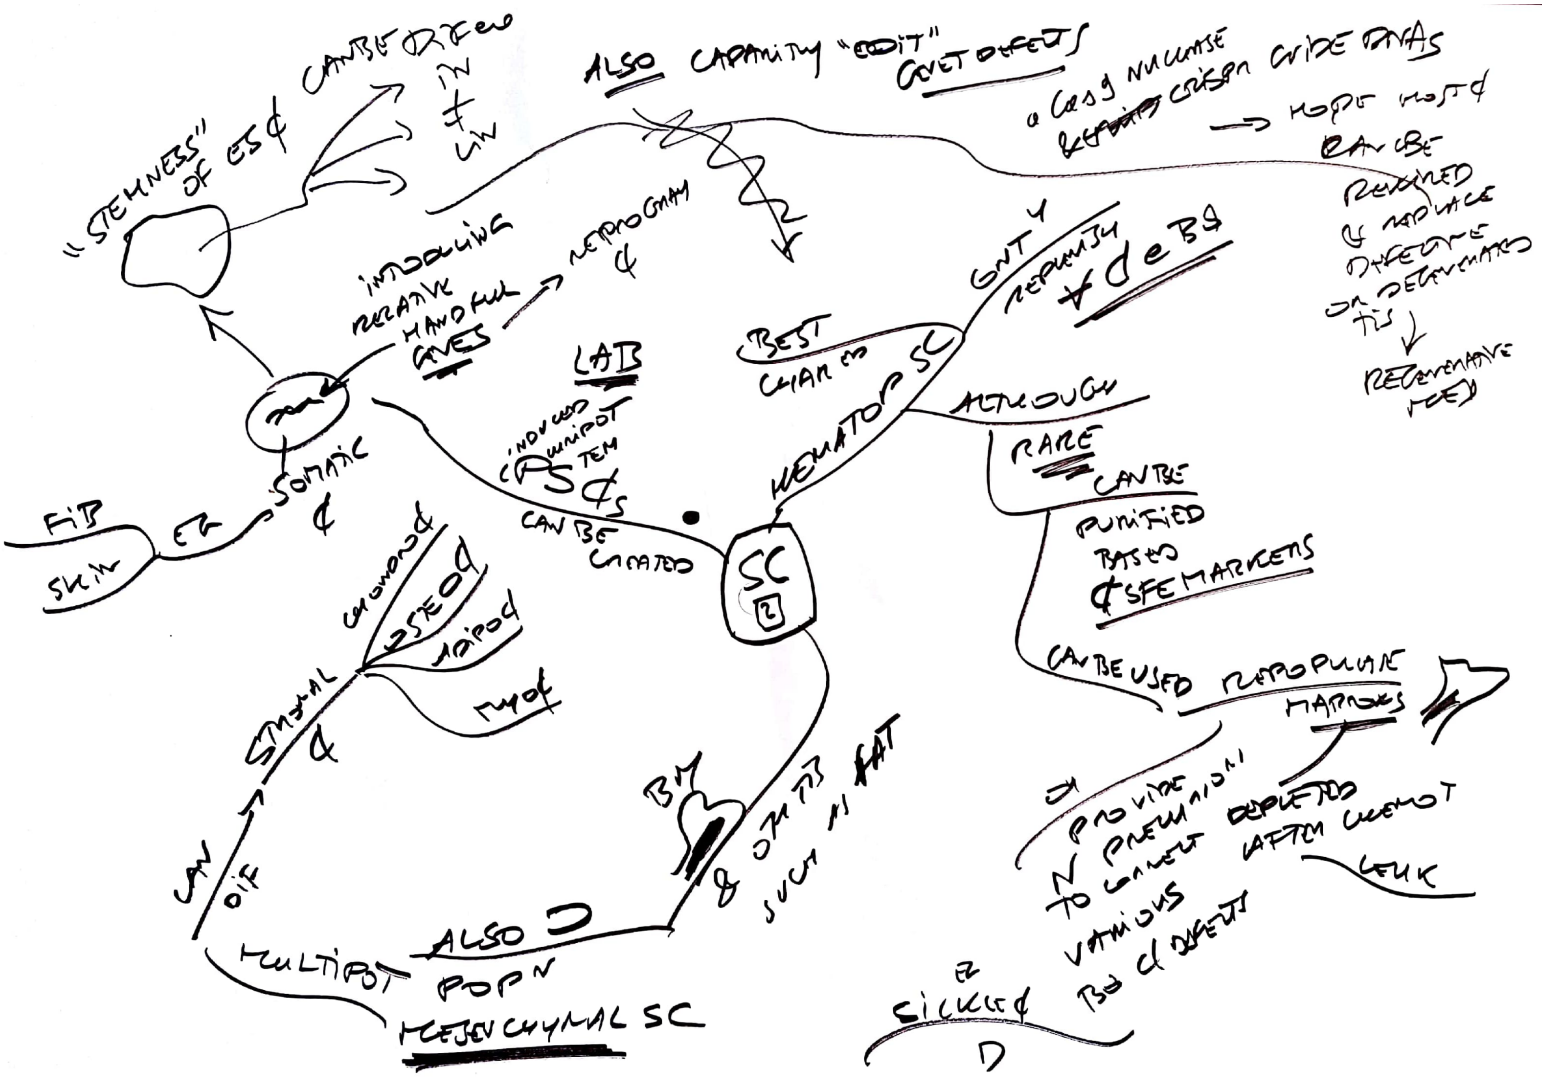 "STEMNESS"
OF ES₵
CAN BE DIF
IN
≠
LIN
ALSO CAPABILITY "EDIT"
GNET DEFECTS
"CAS9 NUCLEASE
& CRISPR GUIDE RNAS
→ HOPE HOST ₵
CAN BE
REPAIRED
& REPLACE
DEFECTIVE
OR DEGENERATED
TIS
REGENERATIVE
MED
INTRODUCING
RELATIVE
HANDFUL
GNES
REPROGRAM
₵
LAB
INDUCED
PLURIPOT
STEM
iPS ₵s
CAN BE
CREATED
SOMATIC
₵
EG
FIB
SKIN
SC
2
HEMATOP SC
BEST
CHAR ED
ONLY
REPLENISH
∀ ₵ e Bd
ALTHOUGH
RARE
CAN BE
PURIFIED
BASED
₵ SFE MARKERS
CAN BE USED
REPOPULATE
MARROWS
DEPLETED
AFTER CHEMOT
LEUK
OR
PROVIDE
N
TO CORRECT
VARIOUS
Bd ₵ DEFECTS
EG
SICKLE ₵
D
BM
& OTH TIS
SUCH AS FAT
ALSO
POPN
MESENCHYMAL SC
MULTIPOT
CAN
DIF
STROMAL
₵
CHONDRO₵
OSTEO₵
ADIPO₵
MYO₵